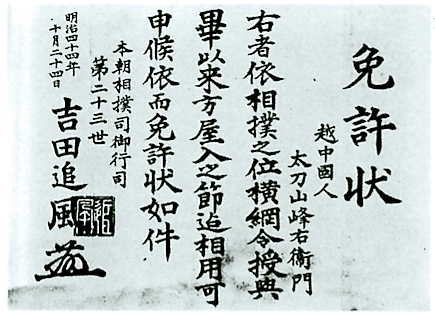 免許状
越中國人
太刀山峰右衛門
右者依相撲之位横綱令授與
畢以来方屋入之節迠相用可
申候依而免許状如件
本朝相撲司御行司
第二十三世
吉田追風
明治四十四年
十月二十四日